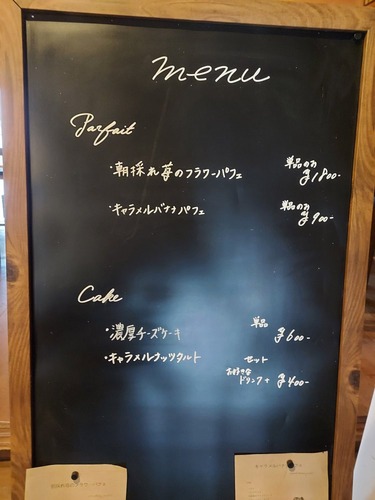 menu
Parfait
・朝採れ苺のフラワーパフェ 単品のみ
¥1800-
・キャラメルバナナパフェ 単品のみ
¥900-
Cake
・濃厚チーズケーキ 単品
¥600-
・キャラメルナッツタルト セット
お好きな
ドリンク + ¥400-